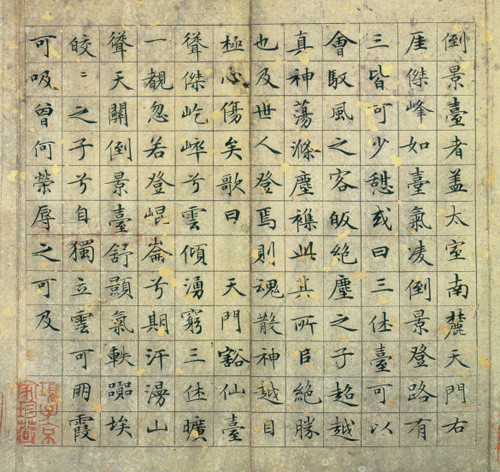 倒景臺者蓋太室南麓天門右
厓傑峰如臺氣凌倒景登路有
三皆可少憇或曰三休臺可以
會馭風之客皈絶塵之子超越
真神蕩滌塵襟此其所㠯絶勝
也及世人登焉則魂散神越目
極心傷矣歌曰　天門豁仙臺
聳傑屹崪兮雲傾湧窮三休曠
一覩忽若登崐崙兮期汗漫山
聳天關倒景臺舒顥氣軼埃
皎〻之子兮自獨立雲可朋霞
可吸曾何榮辱之可及
項子京家珍藏